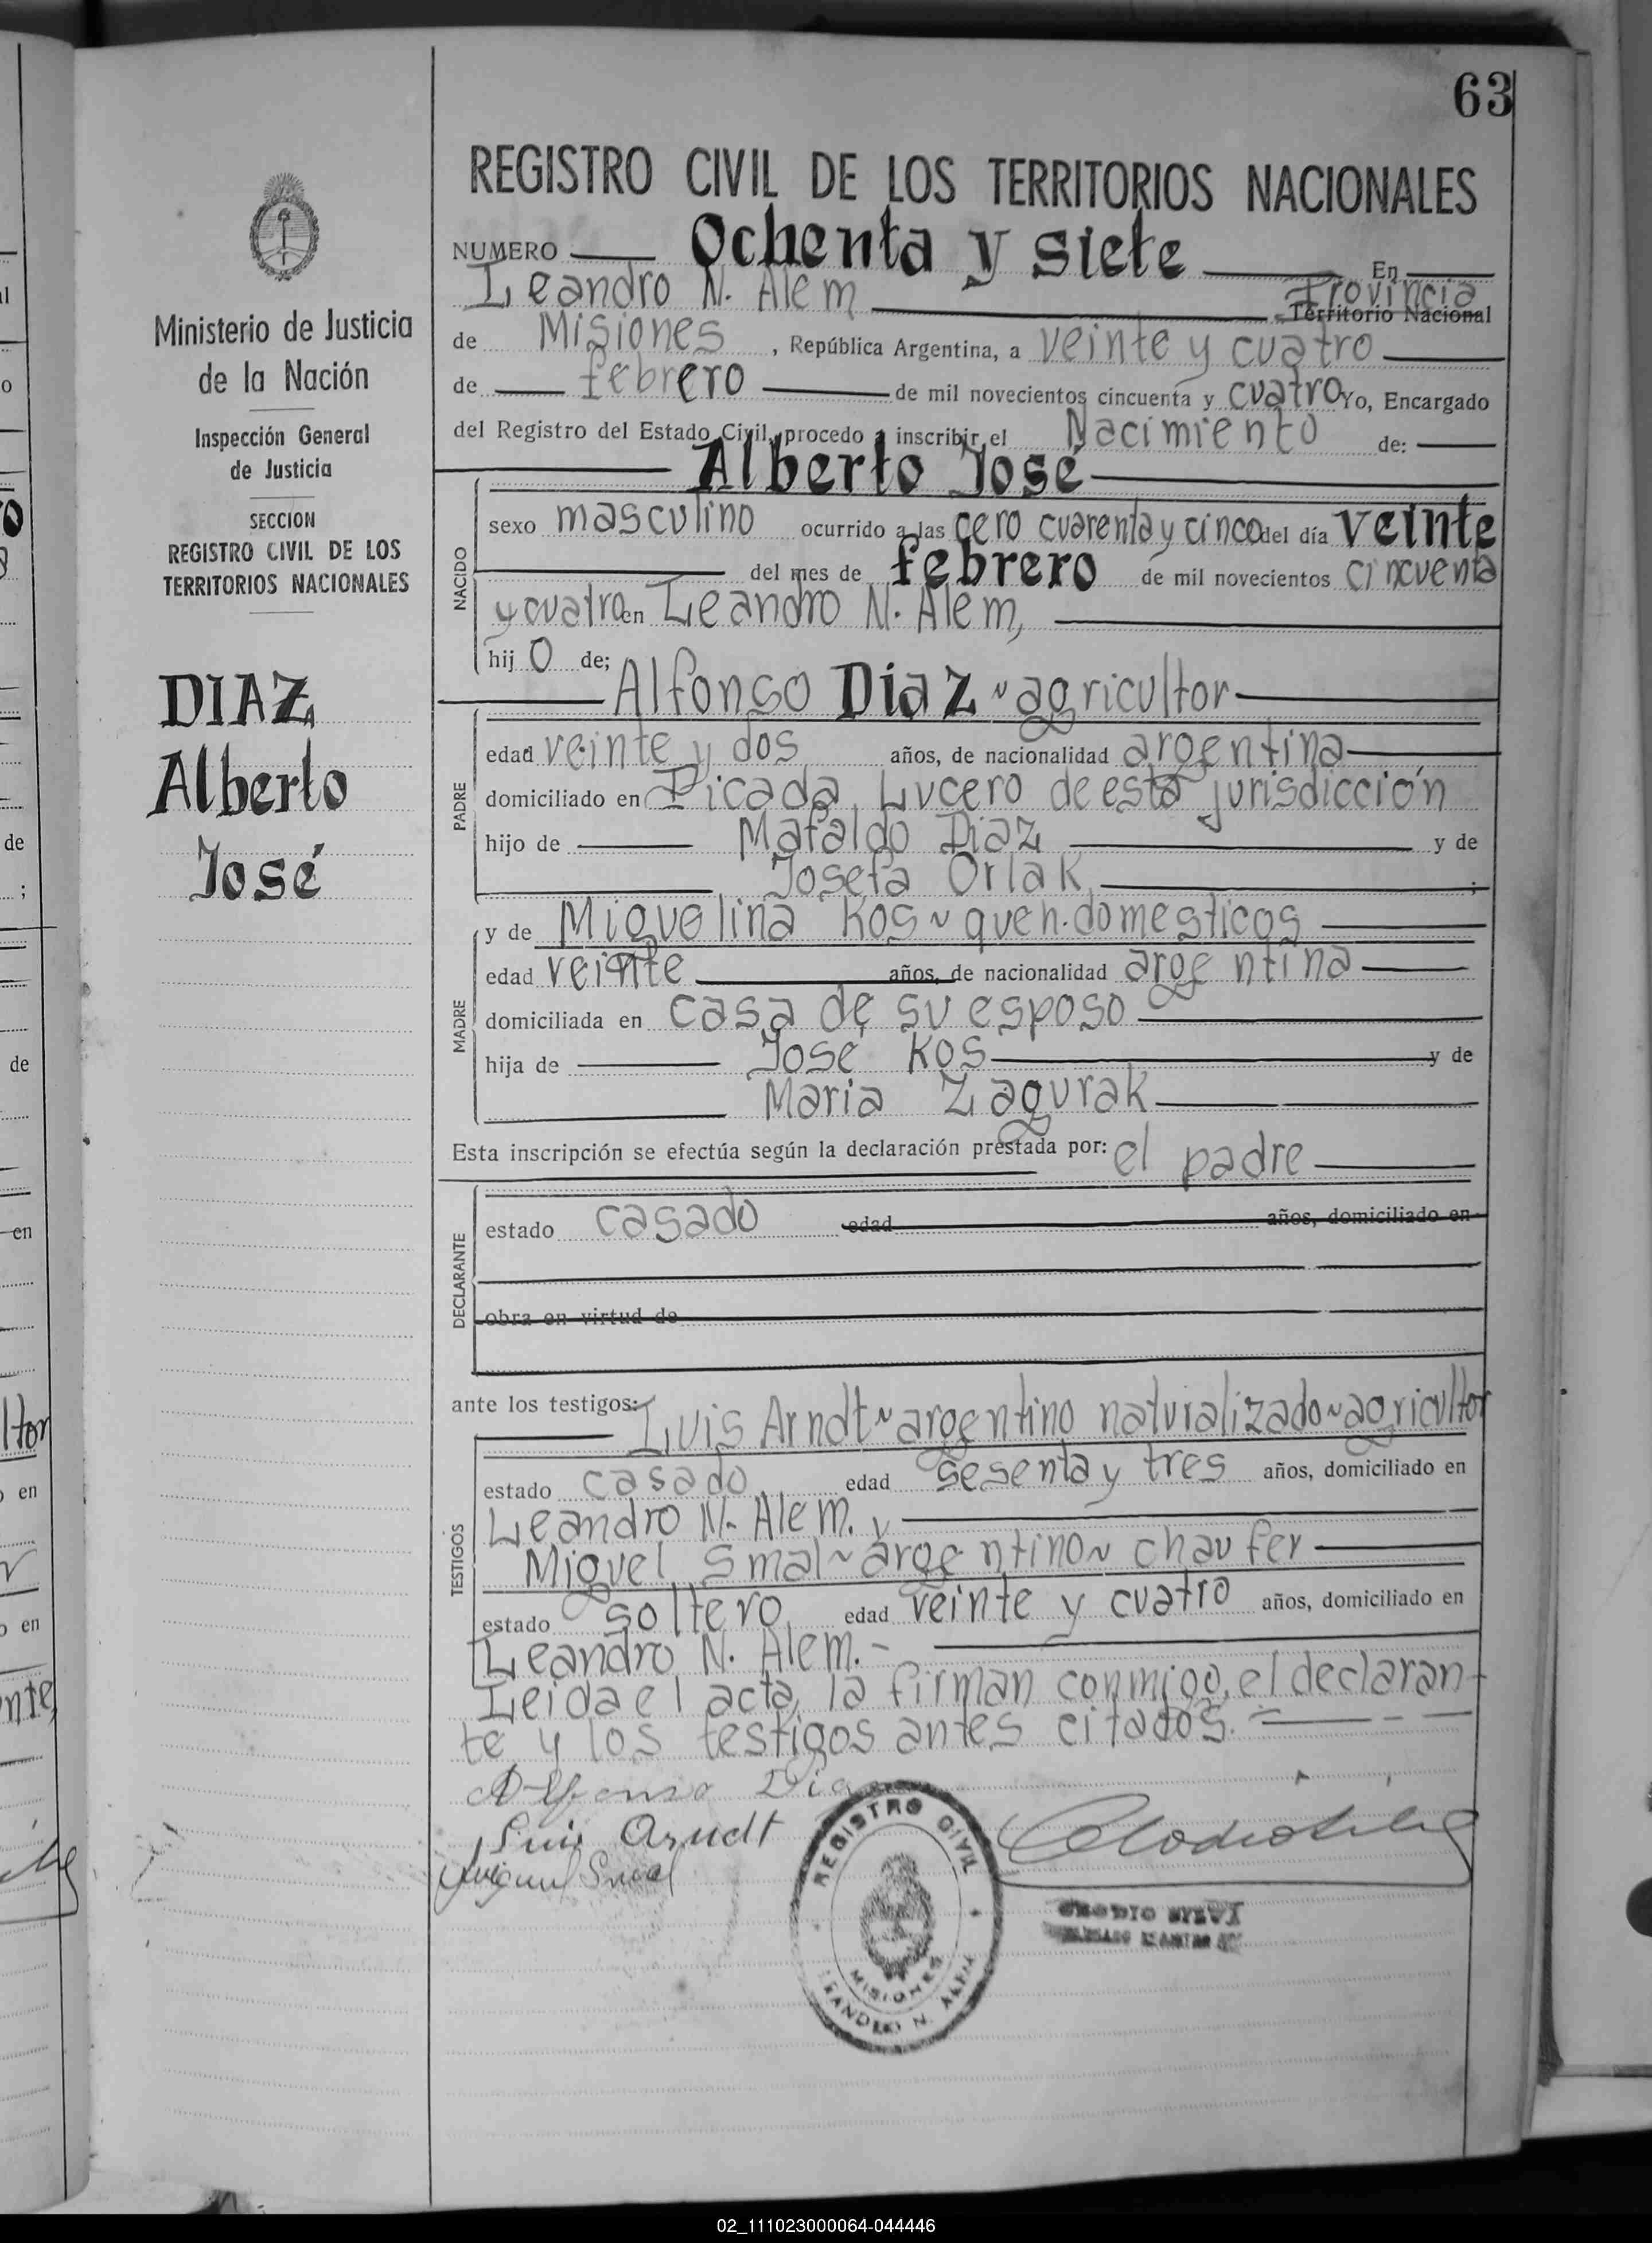 63
REGISTRO CIVIL DE LOS TERRITORIOS NACIONALES
NUMERO Ochenta y siete En
Leandro N. Alem Provincia
Territorio Nacional
de Misiones, República Argentina, a veinte y cuatro
de febrero de mil novecientos cincuenta y cuatro Yo, Encargado
del Registro del Estado Civil, procedo a inscribir el Nacimiento de:
Alberto José
NACIDO
sexo masculino ocurrido a las cero cuarenta y cinco del día veinte
del mes de febrero de mil novecientos cincuenta
y cuatro en Leandro N. Alem,
hij o de;
Alfonso Diaz ~ agricultor
PADRE
edad veinte y dos años, de nacionalidad argentina
domiciliado en Picada Lucero de esta jurisdicción
hijo de Mafaldo Diaz y de
Josefa Orlak ;
y de Miguelina Kos ~ queh. domesticos
MADRE
edad veinte años, de nacionalidad argentina
domiciliada en casa de su esposo
hija de José Kos y de
Maria Zagurak
Esta inscripción se efectúa según la declaración prestada por: el padre
DECLARANTE
estado casado edad años, domiciliado en
obra en virtud de
ante los testigos:
Luis Arndt ~ argentino naturalizado ~ agricultor
TESTIGOS
estado casado edad sesenta y tres años, domiciliado en
Leandro N. Alem. y
Miguel Smal ~ argentino ~ chaufer
estado soltero edad veinte y cuatro años, domiciliado en
Leandro N. Alem. -
Leida el acta, la firman conmigo, el declaran-
te y los testigos antes citados. =
Alfonso Dia
Luis Arndt
Miguel Smal
REGISTRO CIVIL
MISIONES
LEANDRO N. ALEM
Ministerio de Justicia
de la Nación
Inspección General
de Justicia
SECCION
REGISTRO CIVIL DE LOS
TERRITORIOS NACIONALES
DIAZ
Alberto
José
al
o
de
;
de
en
ltor
en
en
nte,
02_111023000064-044446